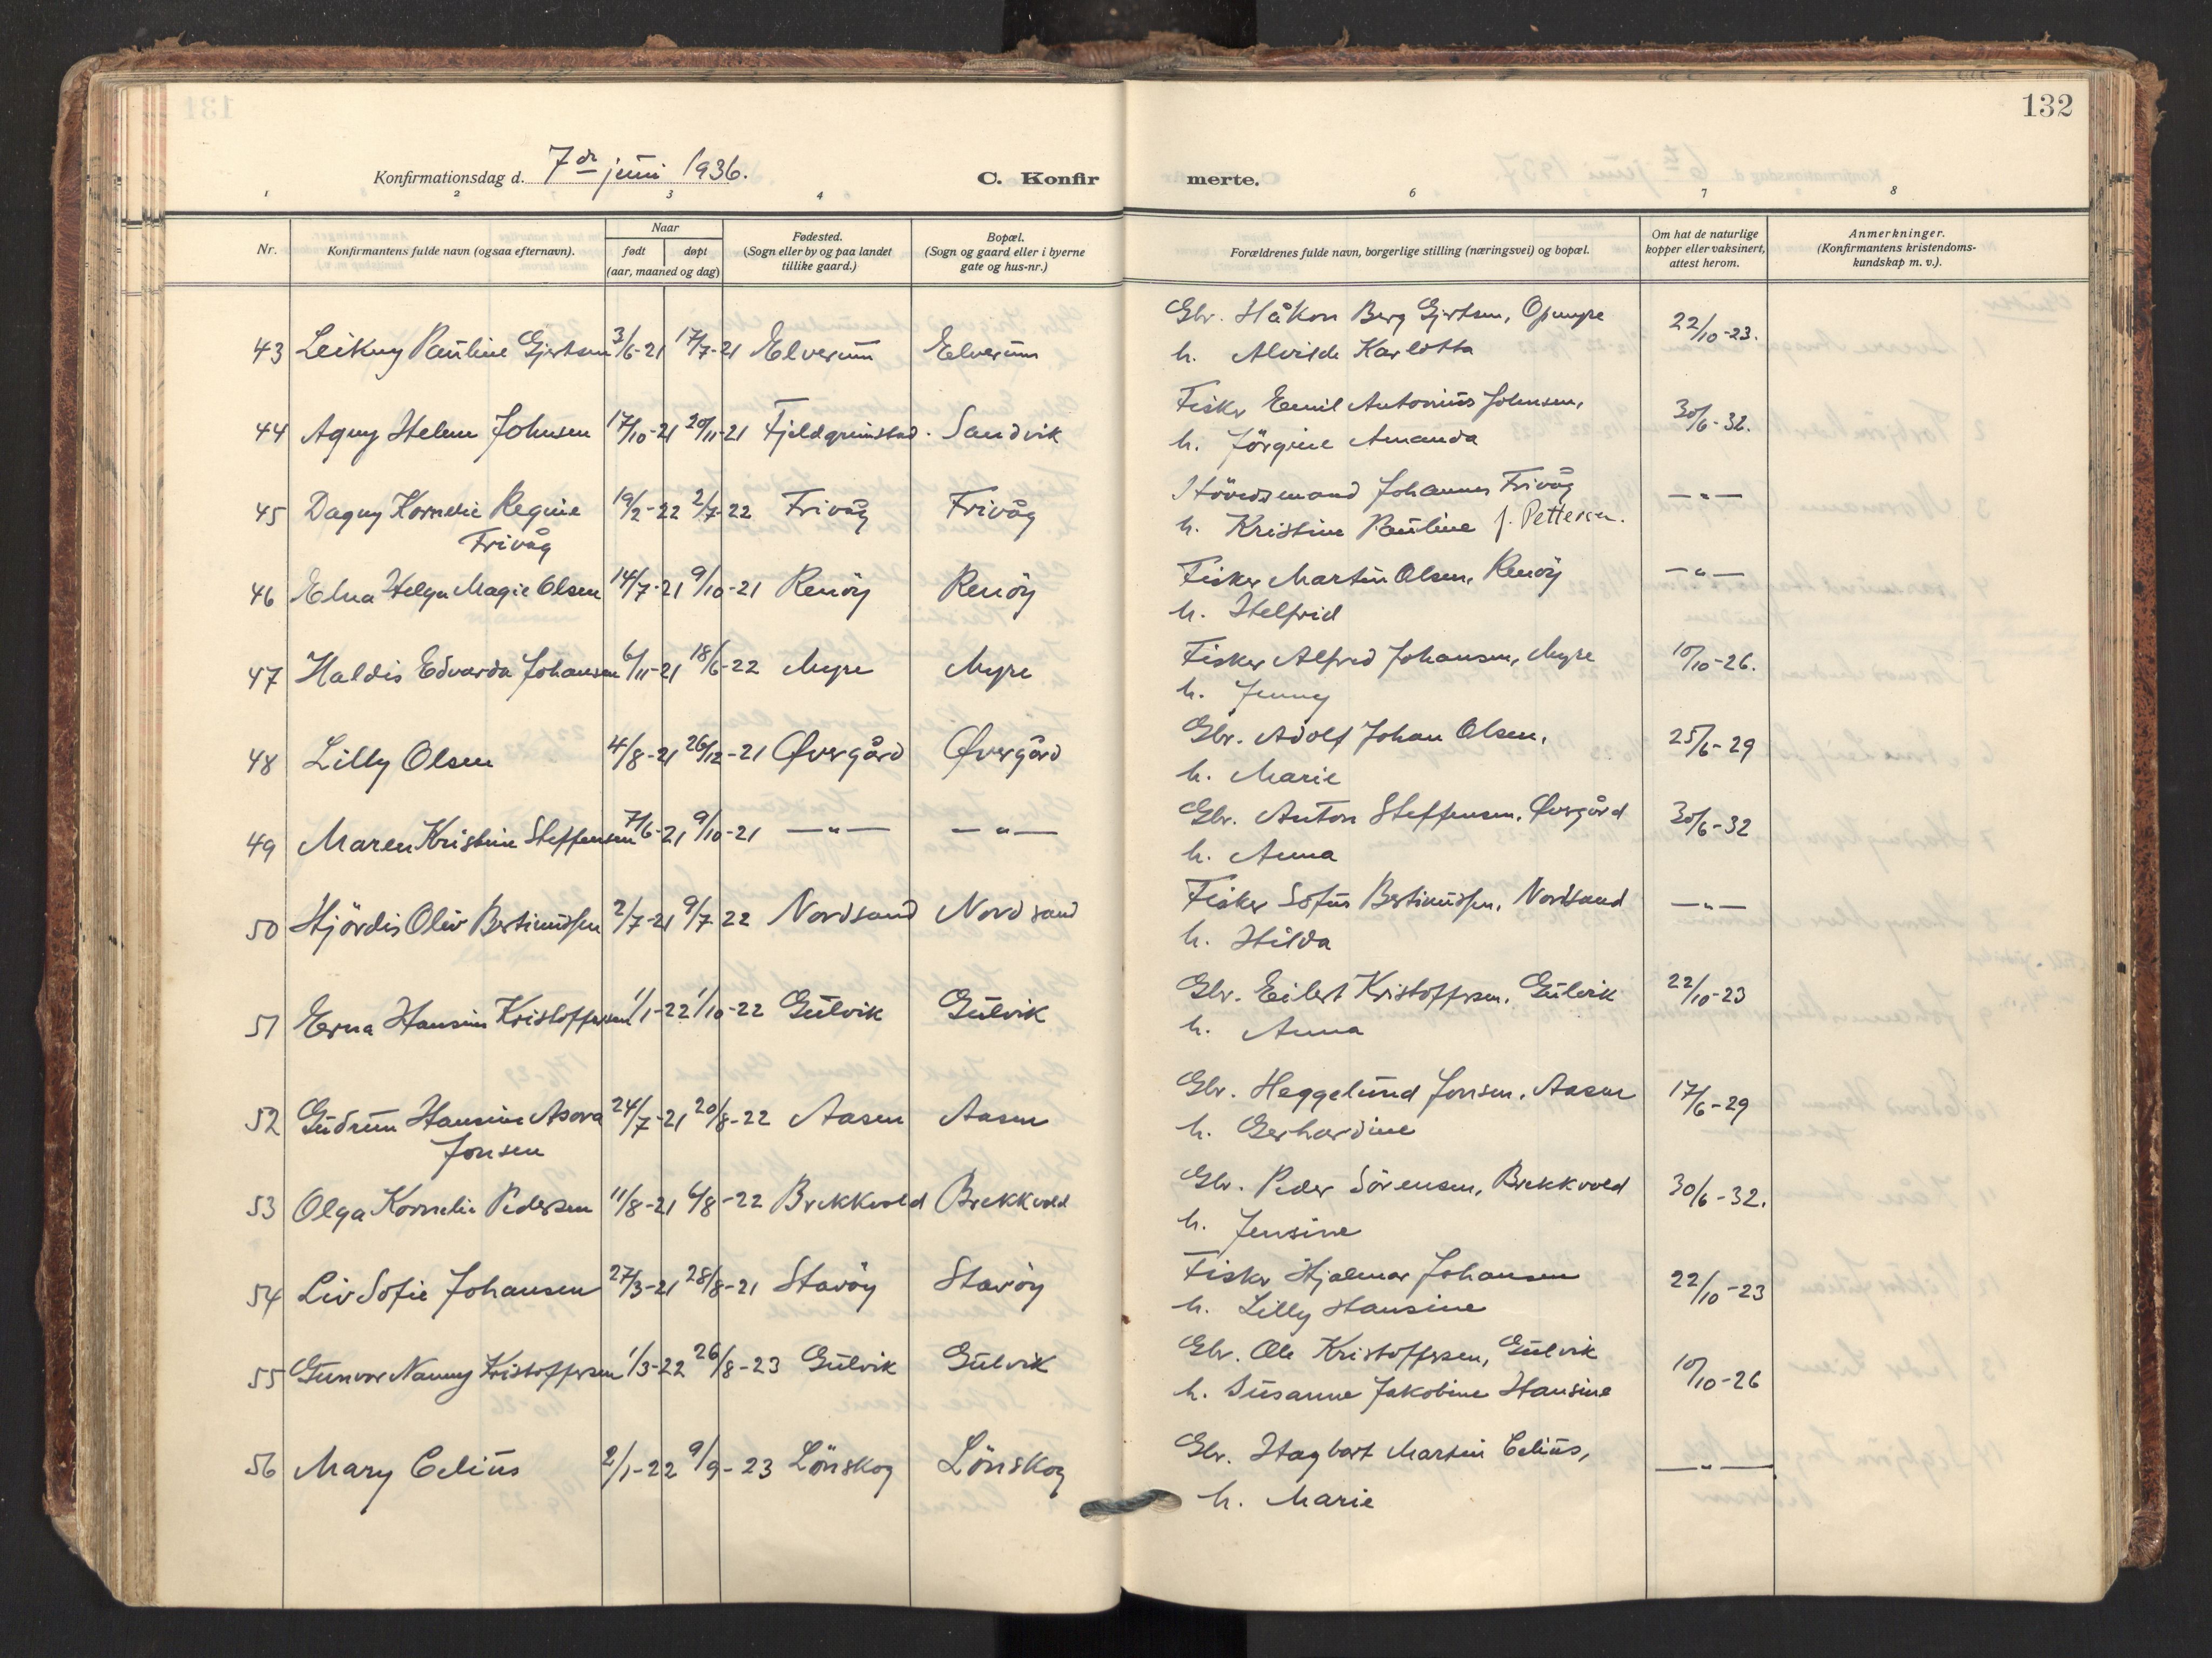 132
Konfirmationsdag d. 7de juni 1936.
C. Konfir merte.
1 2 3 4 6 7 8
Nr. Konfirmantens fulde navn (ogsaa efternavn). Naar født døpt (aar, maaned og dag) Fødested. (Sogn eller by og paa landet tillike gaard.) Bopæl. (Sogn og gaard eller i byerne gate og hus-nr.) Forældrenes fulde navn, borgerlige stilling (næringsvei) og bopæl. Om hat de naturlige kopper eller vaksinert, attest herom. Anmerkninger. (Konfirmantens kristendoms-kundskap m. v.).
43 Leikny Pauline Gjertsen 3/6-21 17/7-21 Elverum Elverum Gbr. Håkon Berg Gjertsen, 22/10-23.
h. Alvilde Karlotta
44 Agny Helene Johnsen 17/10-21 20/11-21 Fjeldgrimstad. Sandvik Fisker Emil Antonius Johnsen, 30/6-32.
h. Jörgine Amanda
45 Dagny Kornelie Regine 19/2-22 2/7-22 Frivåg Frivåg Johannes Frivåg — " —
Frivåg h. Kristine Pauline f. Pettersen.
46 Edna Helga Magie Olsen 14/7-21 9/10-21 Renöy Renöy Fisker Martin Olsen, Renöy — " —
h. Helfrid
47 Haldis Edvarda Johansen 6/11-21 18/6-22 Myre Myre Fisker Alfred Johansen, Myre 10/10-26.
h. Jenny
48 Lilly Olsen 4/8-21 26/12-21 Øvergård Øvergård Gbr. Adolf Johan Olsen, 25/6-29
h. Marie
49 Maren Kristine Steffensen 7/6-21 9/10-21 — " — — " — Gbr. Anton Steffensen, Øvergård 30/6-32
h. Anna
50 Hjördis Oliv Bertinussen 2/7-21 9/7-22 Nordsand Nordsand Fisker Sofus Bertinussen, Nordsand — " —
h. Hilda
51 Erna Hansine Kristoffersen 1/1-22 1/10-22 Gulvik Gulvik Gbr. Eilert Kristoffersen, Gulvik 22/10-23
h. Anna
52 Gudrun Hansine Asora 24/7-21 20/8-22 Aasen Aasen Gbr. Heggelund Jonsen, Aasen 17/6-29
Jonsen h. Gerhardine
53 Olga Kornelie Pedersen 11/8-21 6/8-22 Brekkvold Brekkvold Gbr. Peder Sörensen, Brekkvold 30/6-32.
h. Jensine
54 Liv Sofie Johansen 27/3-21 28/8-21 Stavöy Stavöy Fisker Hjalmar Johansen 22/10-23
h. Lilly Hansine
55 Gunvor Nanny Kristoffersen 1/3-22 26/8-23 Gulvik Gulvik Gbr. Ole Kristoffersen, Gulvik 10/10-26
h. Susanne Jakobine Hansine
56 Mary Celius 2/1-22 9/9-23 Lönskog Lönskog Gbr. Hagbart Martin Celius, — " —
h. Marie